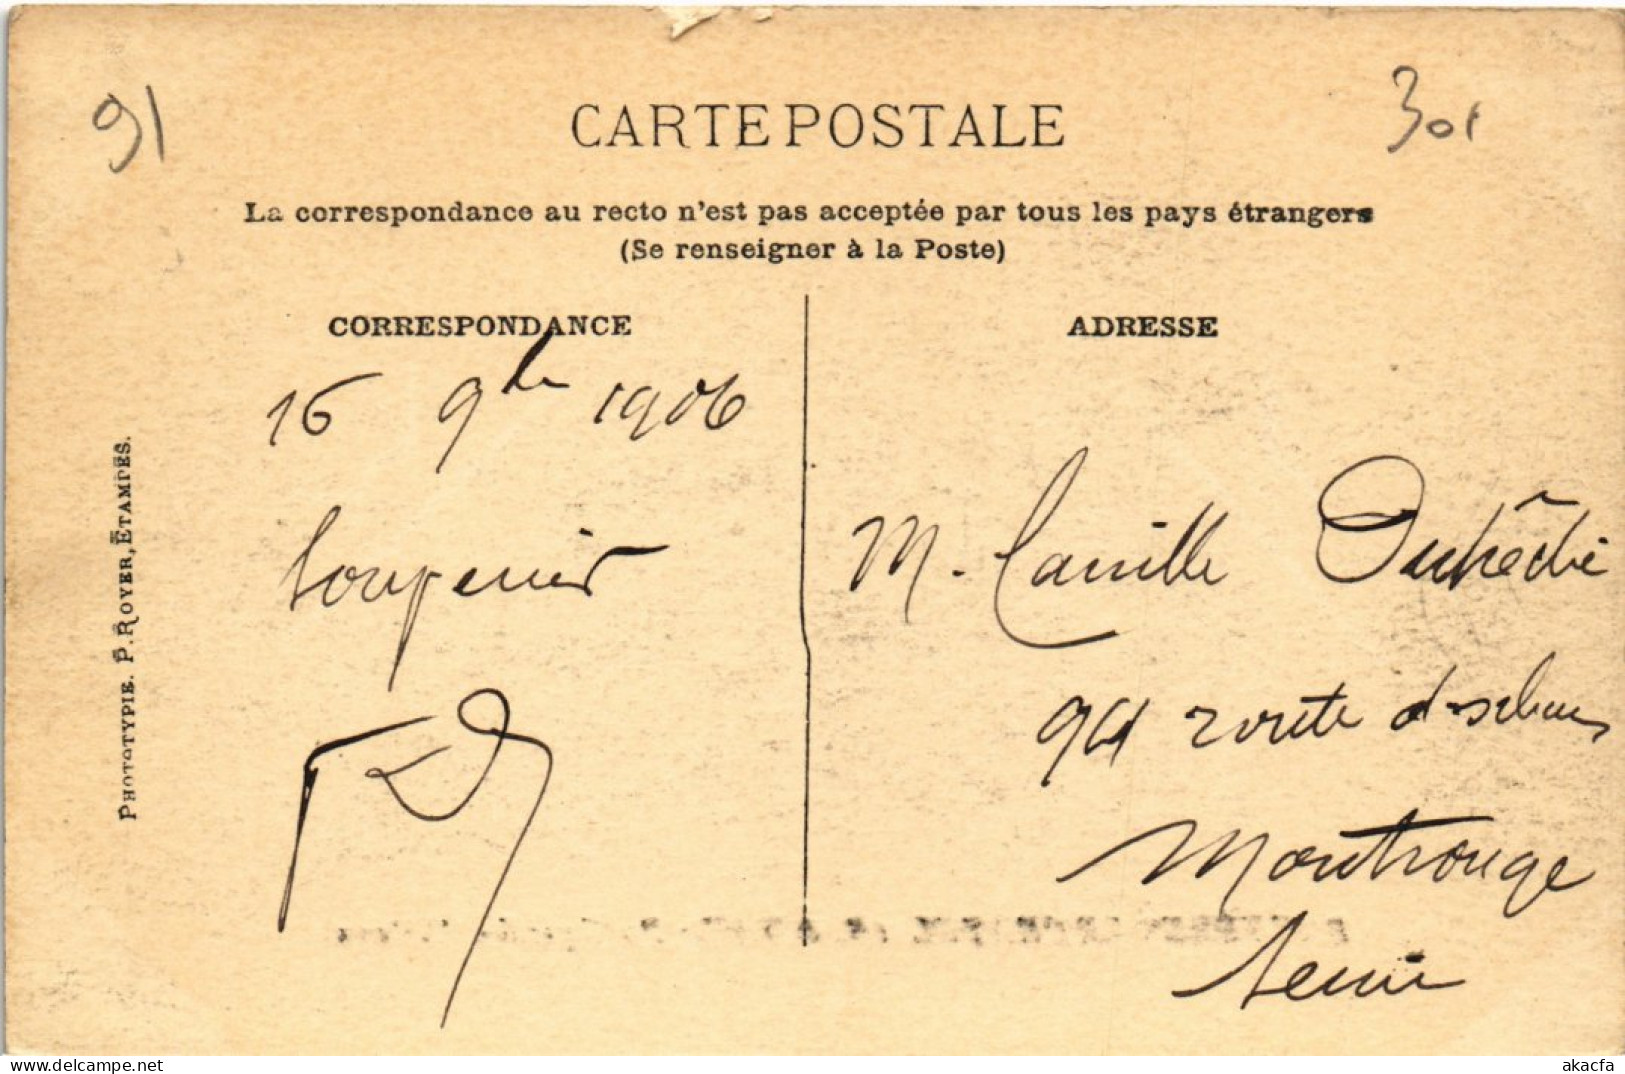 91
301
CARTE POSTALE
La correspondance au recto n'est pas acceptée par tous les pays étrangers
(Se renseigner à la Poste)
CORRESPONDANCE
ADRESSE
16 9bre 1906
Souvenir
M. Camille
route d'orléans
Montrouge
Seine
PHOTOTYPIE. P. ROYER, ETAMPES.
akacfa
delcampe.net